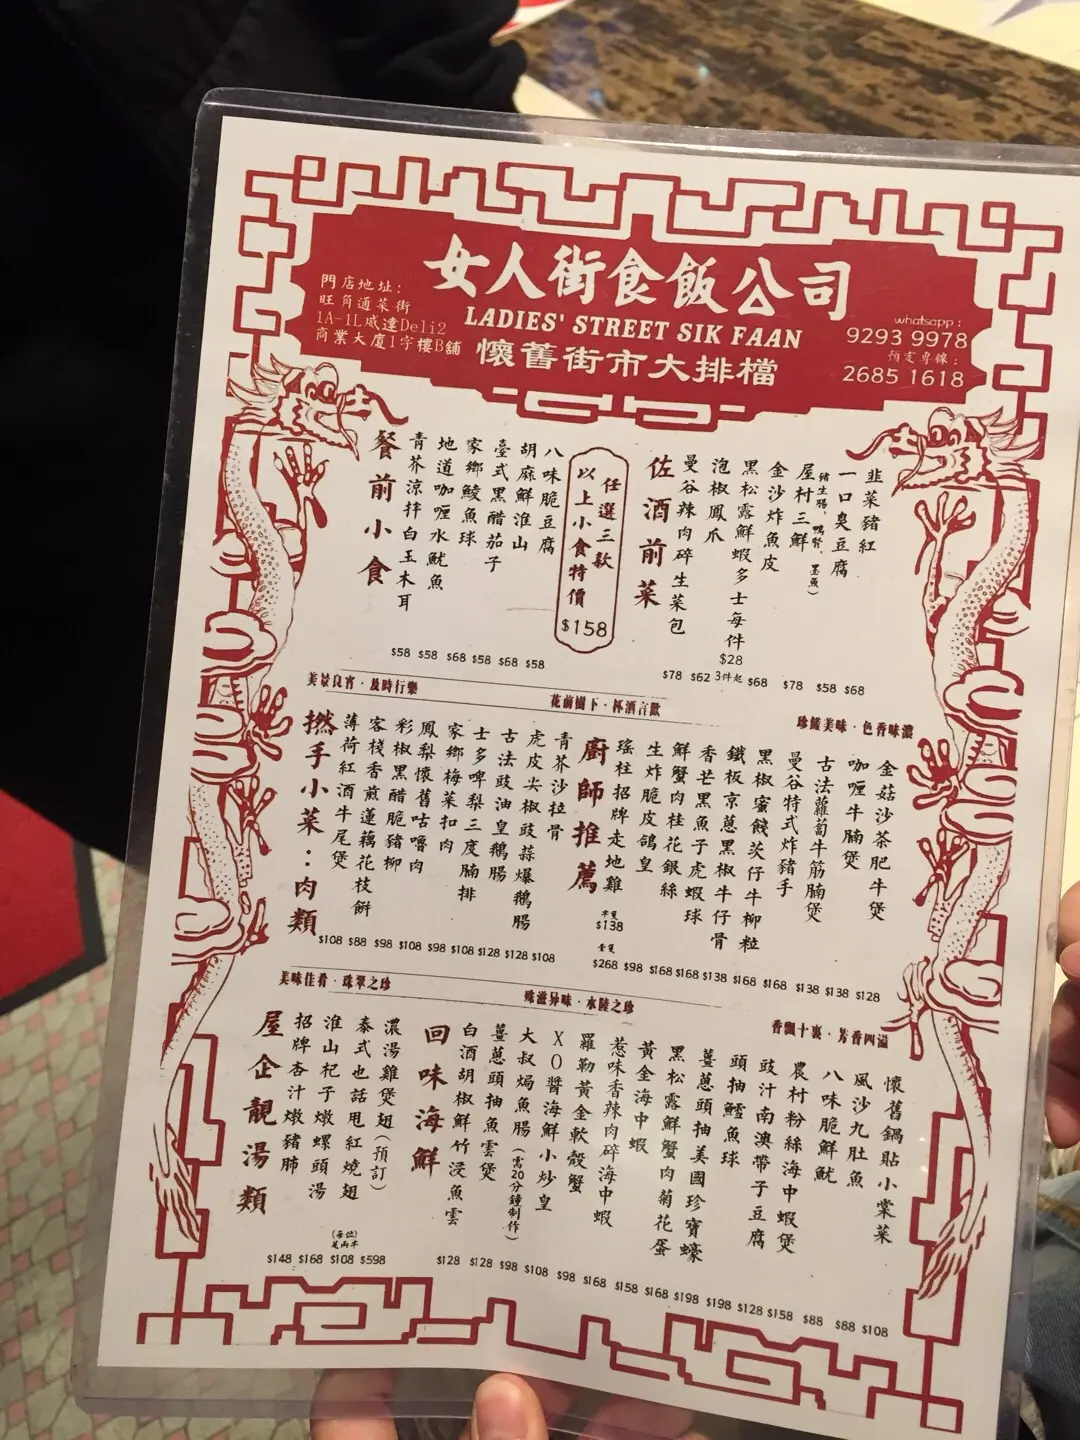 女人街食飯公司
LADIES' STREET SIK FAAN
懷舊街市大排檔
門店地址:
旺角通菜街
1A-1L威達Deli2
商業大廈1字樓B舖
whatsapp:
9293 9978
預定專線:
2685 1618
餐前小食
青芥涼拌白玉木耳
地道咖喱水魷魚
家鄉鯪魚球
臺式黑醋茄子
胡麻鮮淮山
八味脆豆腐
$58 $58 $68 $58 $68 $58
任選三款
以上小食特價
$158
佐酒前菜
曼谷辣肉碎生菜包
泡椒鳳爪
黑松露鮮蝦多士每件
金沙炸魚皮
屋村三鮮
豬生腸、鴨腎、墨魚)
一口臭豆腐
韭菜豬紅
$78 $62 $28 3件起 $68 $78 $58 $68
美景良宵·及時行樂
花前樹下·杯酒言歡
珍饈美味·色香味濃
撚手小菜:肉類
薄荷紅酒牛尾煲
客棧香煎蓮藕花枝餅
彩椒黑醋脆豬柳
鳳梨懷舊咕嚕肉
家鄉梅菜扣肉
士多啤梨三度腩排
古法豉油皇鵝腸
虎皮尖椒豉蒜爆鵝腸
青芥沙拉骨
$108 $88 $98 $108 $98 $108 $128 $128 $108
廚師推薦
瑤柱招牌走地雞
生炸脆皮鴿皇
鮮蟹肉桂花銀絲
香芒黑魚子虎蝦球
鐵板京蔥黑椒牛仔骨
黑椒蜜餞茨仔牛柳粒
曼谷特式炸豬手
古法蘿蔔牛筋腩煲
咖喱牛腩煲
金菇沙茶肥牛煲
半隻
$138
壹隻
$268 $98 $168 $168 $138 $168 $168 $138 $138 $128
美味佳肴·珠翠之珍
殊滋异味·水陸之珍
香飄十裏·芳香四溢
屋企靚湯類
招牌杏汁燉豬肺
淮山杞子燉螺頭湯
泰式也話甩紅燒翅
濃湯雞煲翅(預訂)
(每位)
足兩半
$148 $168 $108 $598
回味海鮮
白酒胡椒鮮竹浸魚雲
薑蔥頭抽魚雲煲
大叔焗魚腸(需20分鐘制作)
XO醬海鮮小炒皇
羅勒黃金軟殼蟹
惹味香辣肉碎海中蝦
黃金海中蝦
黑松露鮮蟹肉菊花蛋
薑蔥頭抽美國珍寶蠔
頭抽鱸魚球
豉汁南澳帶子豆腐
農村粉絲海中蝦煲
八味脆鮮魷
風沙九肚魚
懷舊鍋貼小棠菜
$128 $128 $98 $108 $98 $168 $158 $168 $198 $198 $128 $158 $88 $88 $108